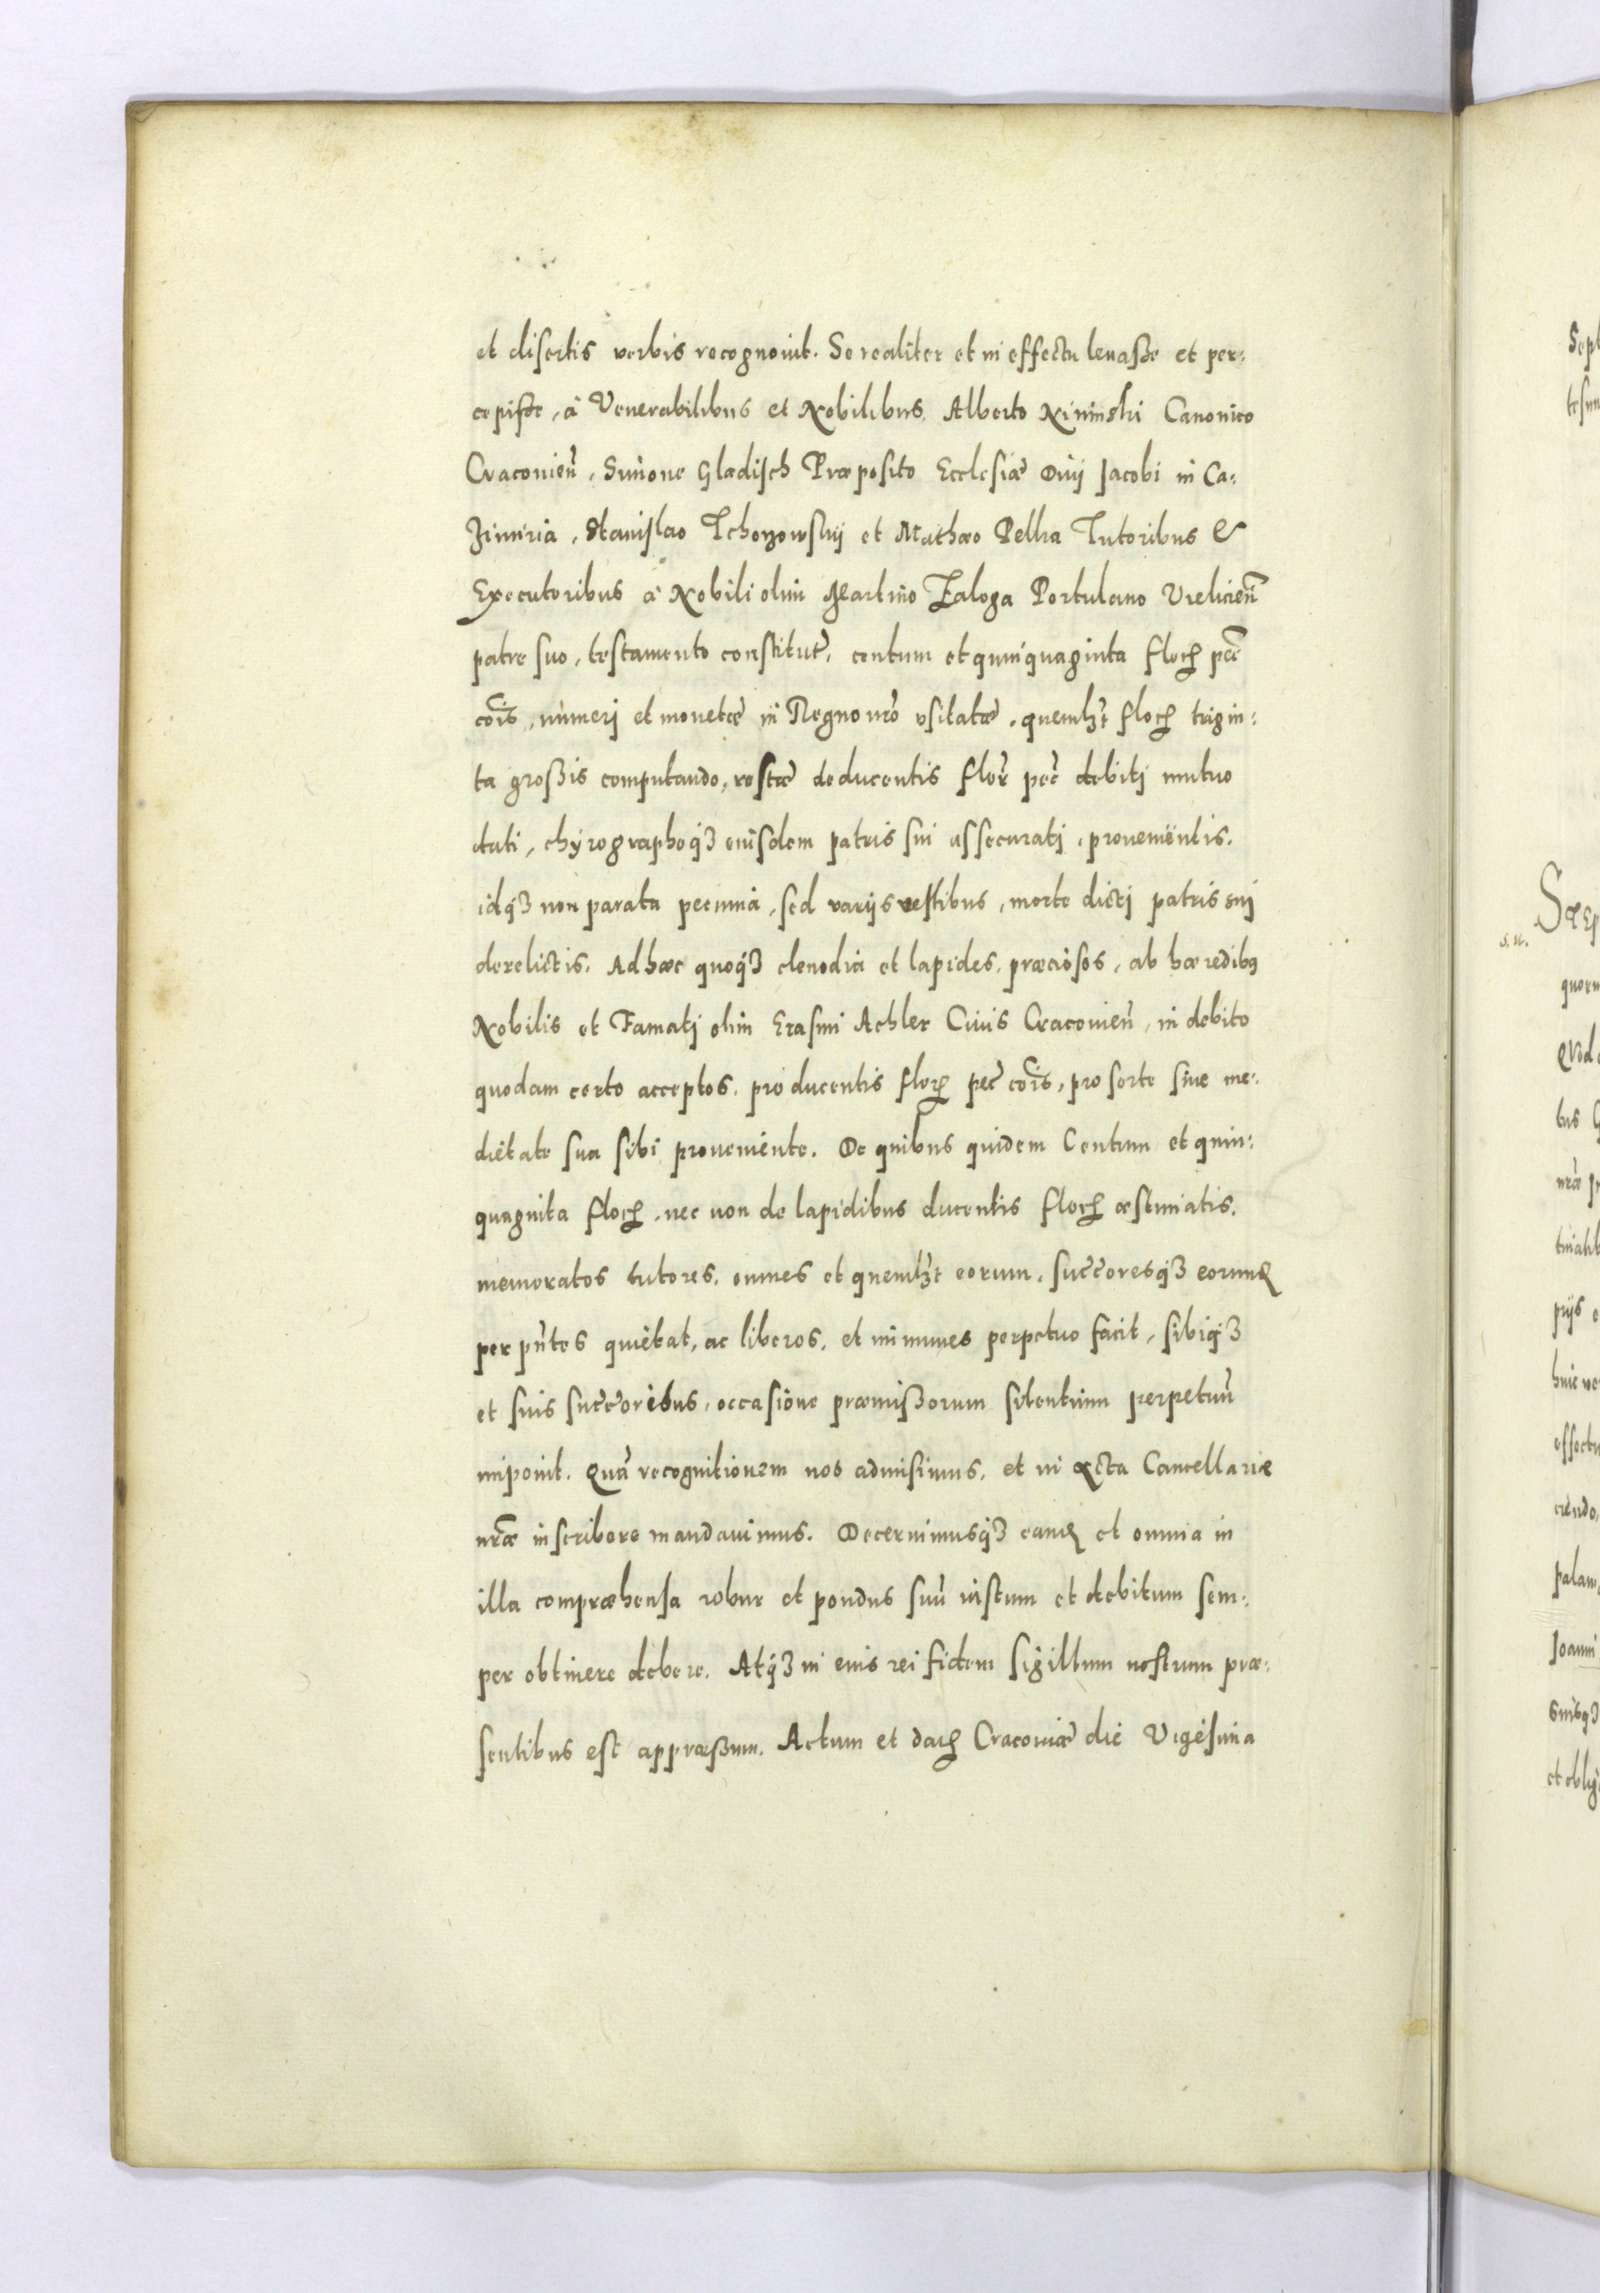 et disertis verbis recognouit. Se realiter et in effectu leuaße et per-
cepiße, à Venerabilibus et Nobilibus Alberto Nininski Canonico
Cracovień, Simone Gladisch Præposito Ecclesiæ Diuj Jacobi in Ca-
zimiria, Stanislao et Mathæo Pellia Tutoribus &
Executoribus à Nobili olim Martino Zaloga Portulano Vielicień
patre suo, testamento constitut̃, centum et quinquaginta floꝝ pec̃
cõis, numeri et monetæ in Regno nr̃o vsitatæ, quemlꝫt floꝝ trigin-
ta großis computando, restæ deducentis flor̃ pec̃ debitj mutuo
dati, chyrographoqꝫ eiusdem patris sui assecuratj, prouenientis.
idqꝫ non parata pecunia, sed varijs vestibus, morte dictj patris suj
derelictis. Ad hæc quoqꝫ clenodia et lapides, præciosos, ab hæredibꝰ
Nobilis et Famatj olim Erasmi Achler Ciuis Cracouień, in debito
quodam certo acceptos, pro ducentis floꝝ pec̃ cõis, pro sorte siue me-
dietate sua sibi proueniente. De quibus quidem Centum et quin-
quaginta floꝝ, nec non de lapidibus ducentis floꝝ æstimatis.
memoratos tutores, omnes et quemlꝫt eorum, succ̃oresqꝫ eorum
per pñtes quietat, ac liberos, et immunes perpetuo facit, sibiqꝫ
et suis succ̃oribus, occasione præmißorum silentium perpetuũ
imponit. Quã recognitionem nos admisimus, et in acta Cancellariæ
nr̃æ inscribere mandauimus. Decernimusqꝫ eam et omnia in
illa compræhensa robur et pondus suũ iustum et debitum sem-
per obtinere debere. Atqꝫ in eius rei fidem sigillum nostrum præ-
sentibus est appræßum. Actum et datꝝ Cracouiæ die Vigesima